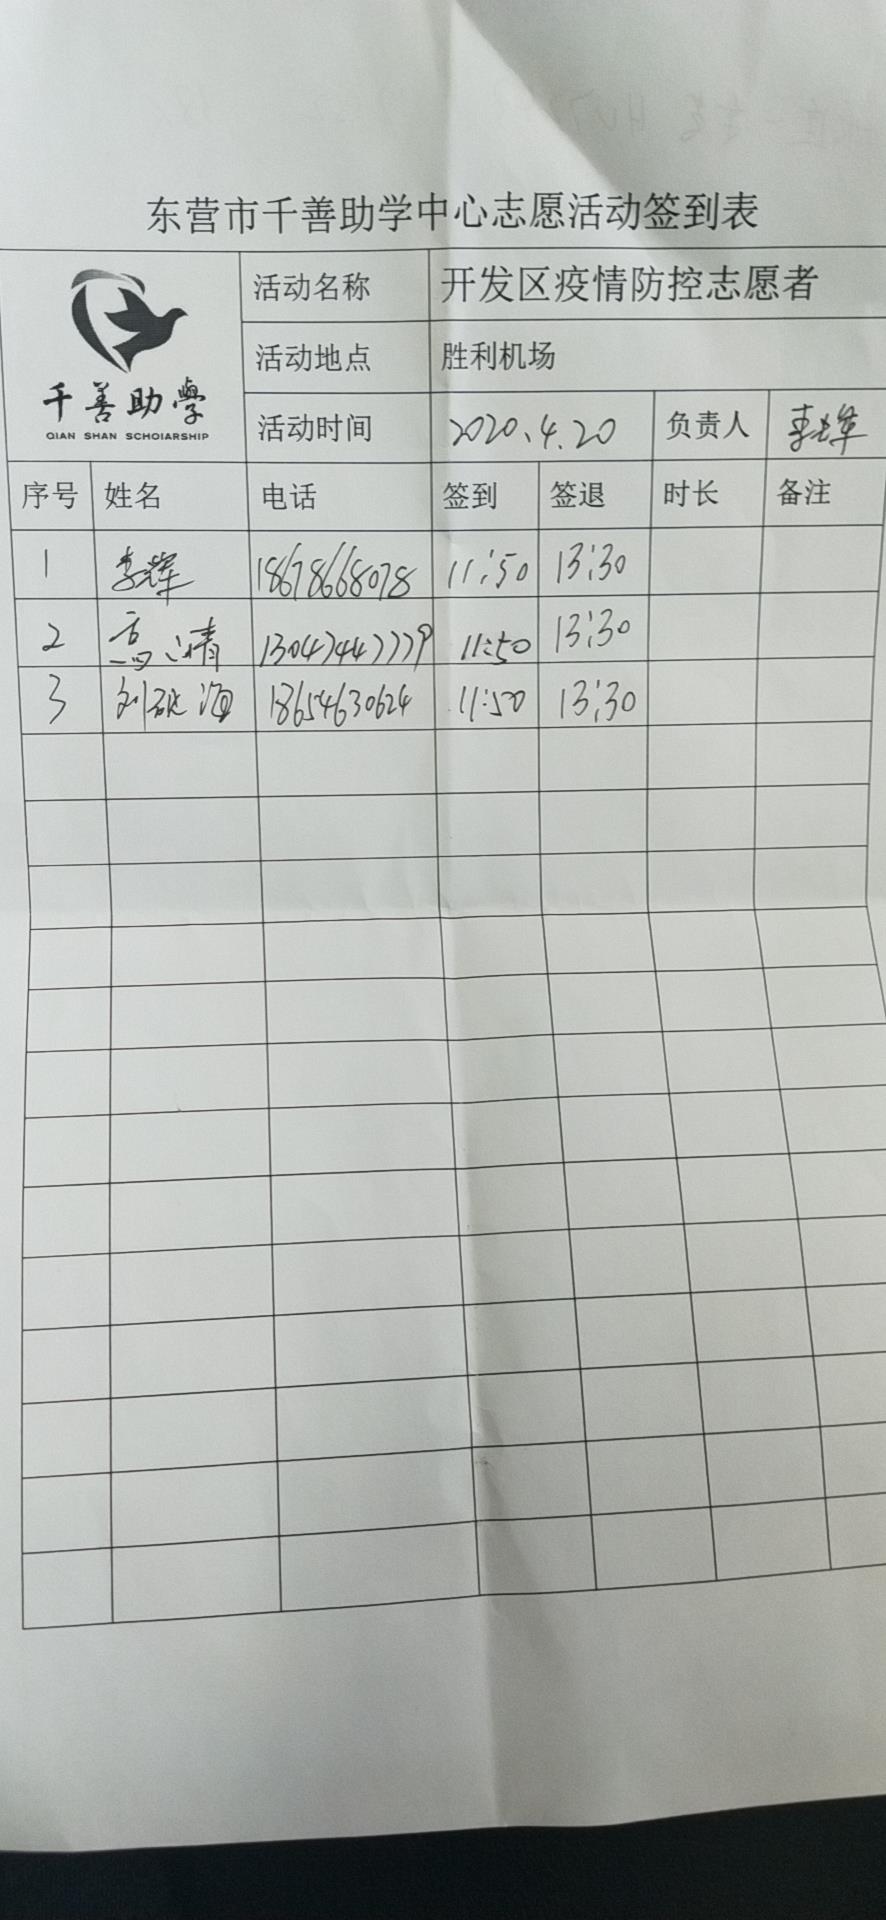 东营市千善助学中心志愿活动签到表
千善助學
QIAN SHAN SCHOIARSHIP
活动名称 开发区疫情防控志愿者
活动地点 胜利机场
活动时间 2020.4.20 负责人 李
序号 姓名 电话 签到 签退 时长 备注
1 李辉 18678668078 11:50 13:30
2 高 11:50 13:30
3 刘 18654630624 11:50 13:30